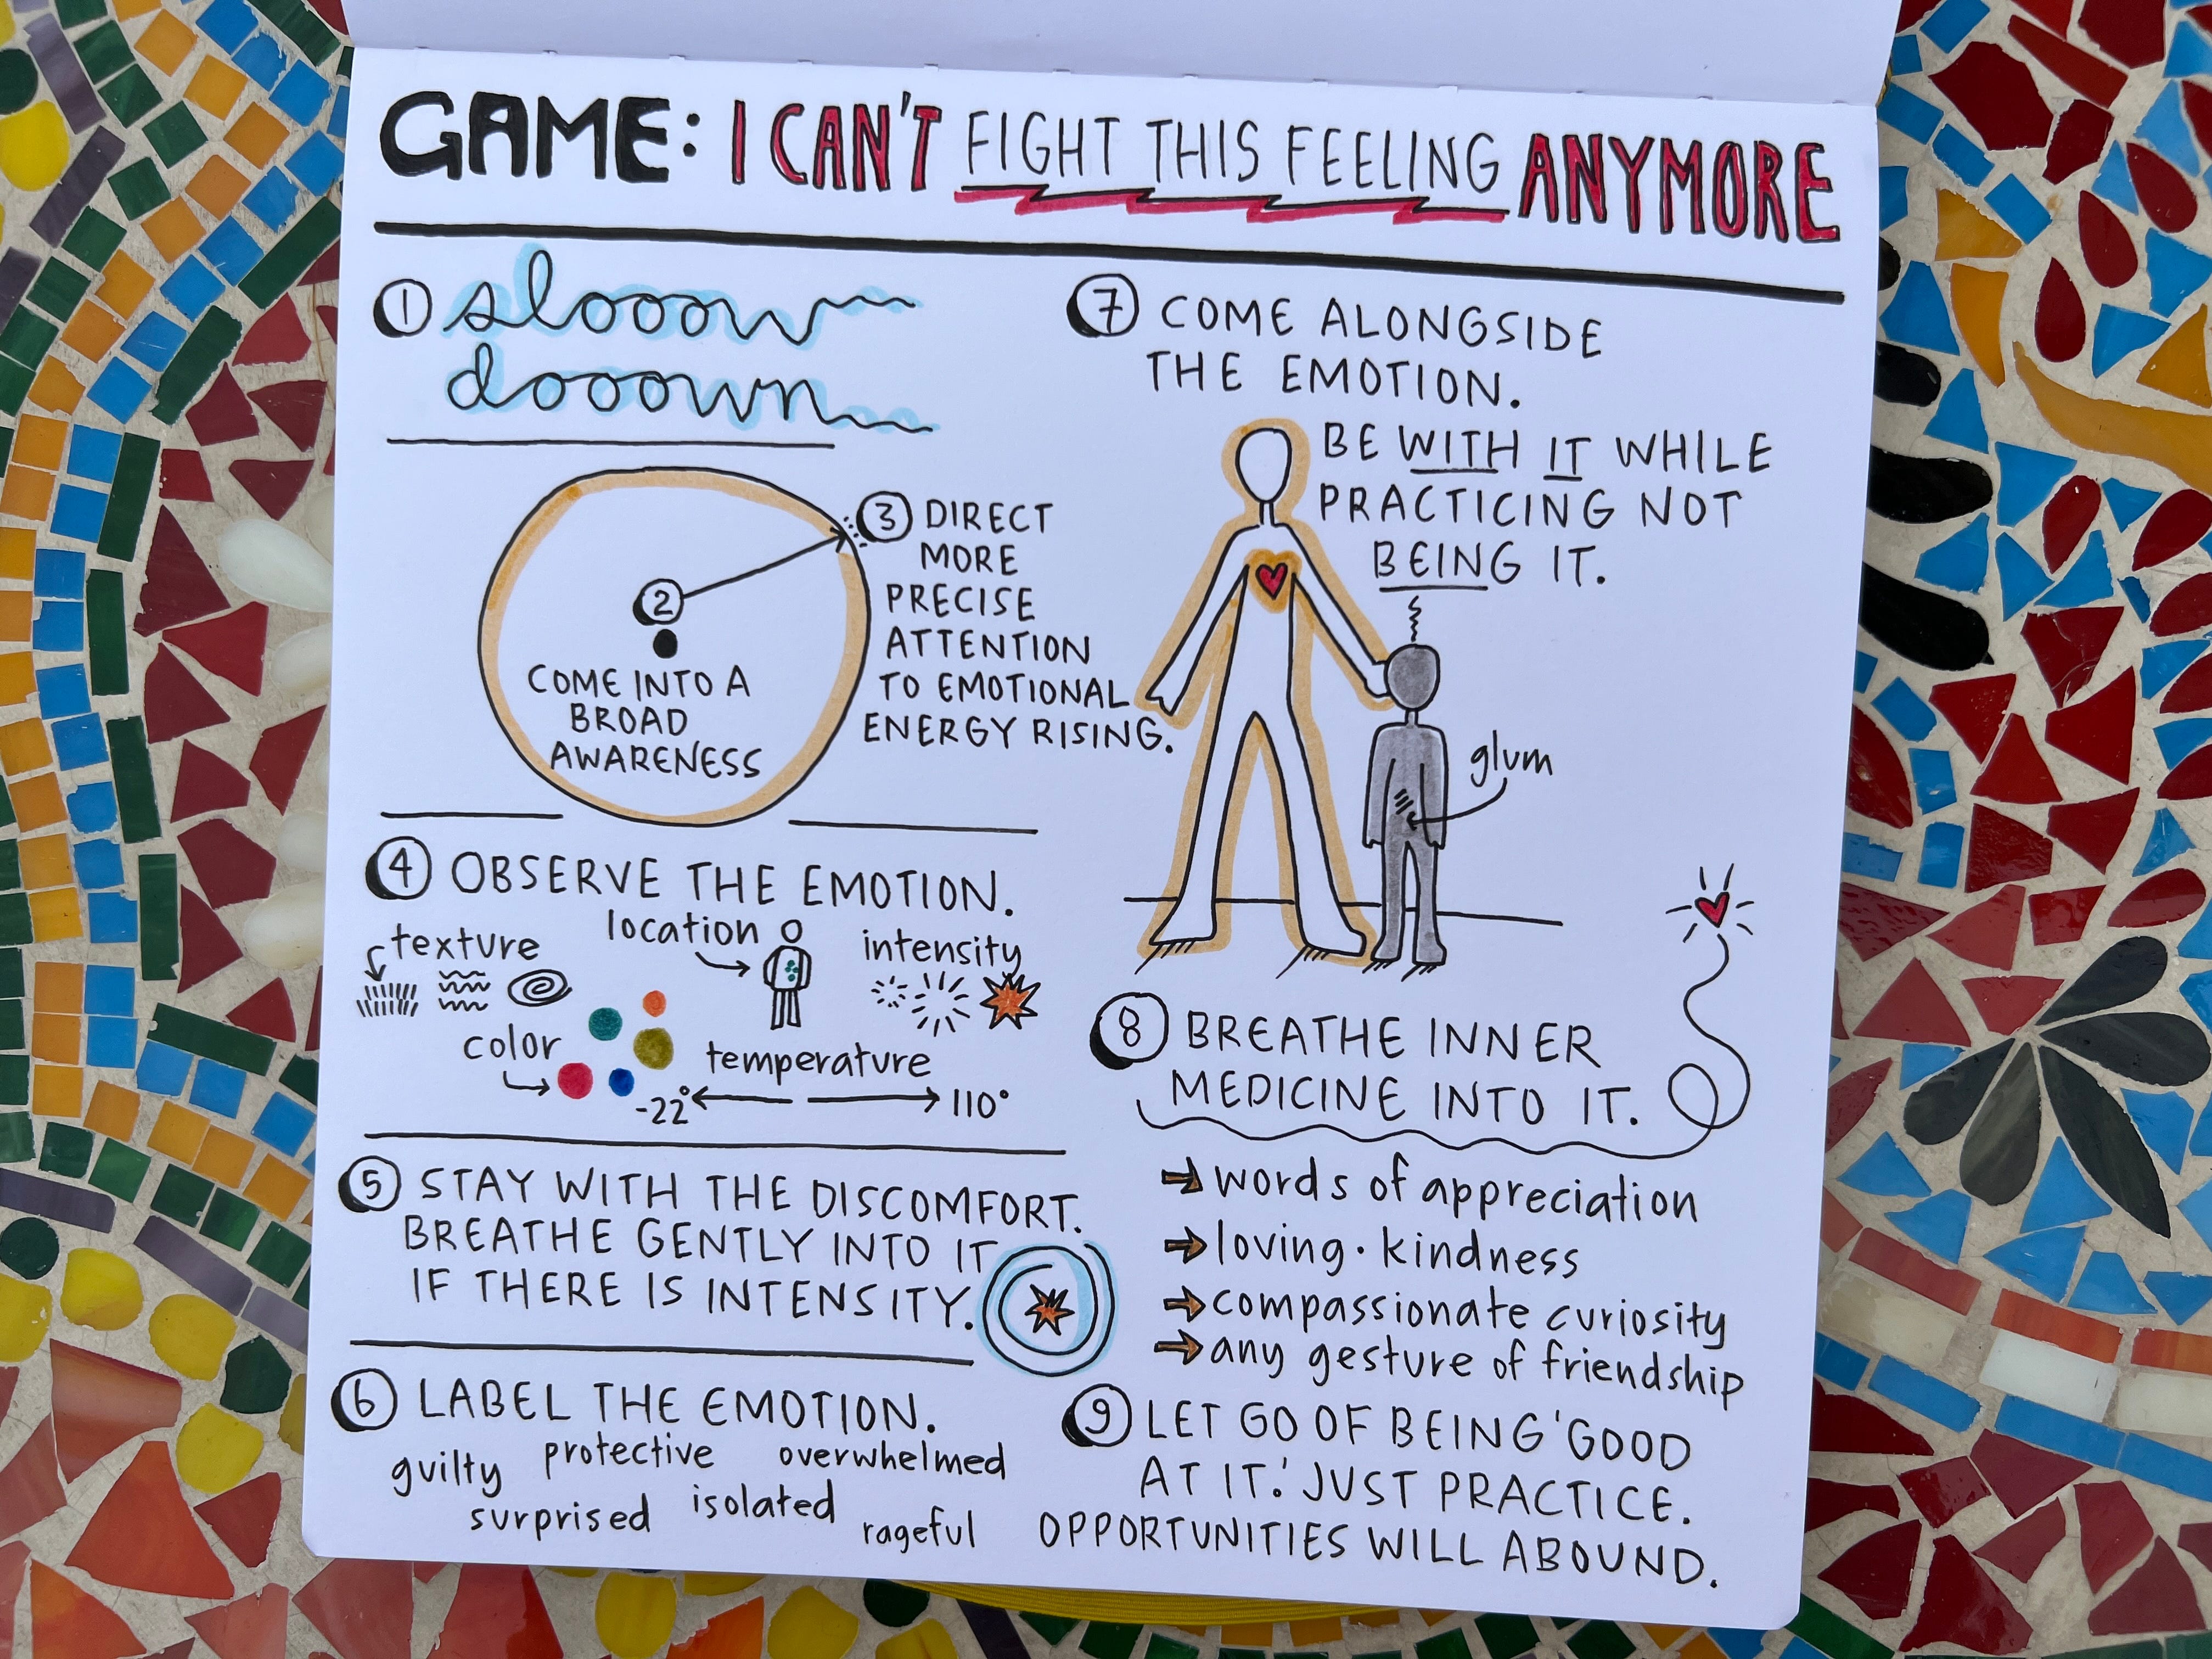 GAME: I CAN'T FIGHT THIS FEELING ANYMORE
1 slooow
dooown
2
COME INTO A
BROAD
AWARENESS
3 DIRECT
MORE
PRECISE
ATTENTION
TO EMOTIONAL
ENERGY RISING.
4 OBSERVE THE EMOTION.
texture
location
intensity
color
temperature
-22° 110°
5 STAY WITH THE DISCOMFORT.
BREATHE GENTLY INTO IT
IF THERE IS INTENSITY.
6 LABEL THE EMOTION.
guilty protective overwhelmed
surprised isolated rageful
7 COME ALONGSIDE
THE EMOTION.
BE WITH IT WHILE
PRACTICING NOT
BEING IT.
glum
8 BREATHE INNER
MEDICINE INTO IT.
words of appreciation
loving·kindness
compassionate curiosity
any gesture of friendship
9 LET GO OF BEING 'GOOD
AT IT.' JUST PRACTICE.
OPPORTUNITIES WILL ABOUND.